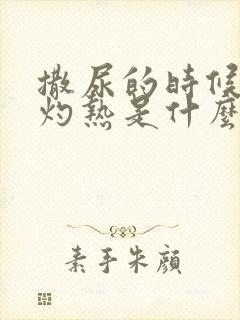 撒尿的時候
灼熱是什麼
素手朱顏